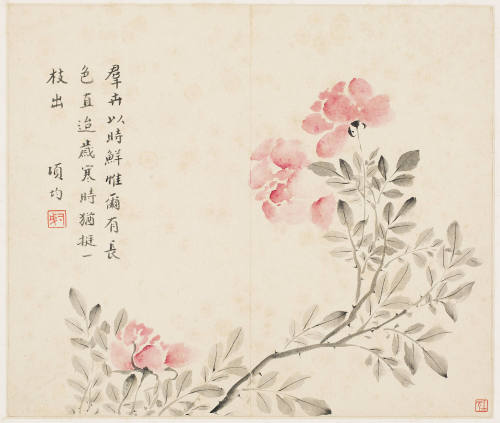 羣卉以時鮮惟爾有長
色直迨歲寒時猶挺一
枝出
項均